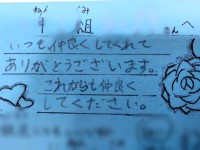 さんへ
いつも仲良くしてくれて
ありがとうございます。
これからも仲良く
してください。